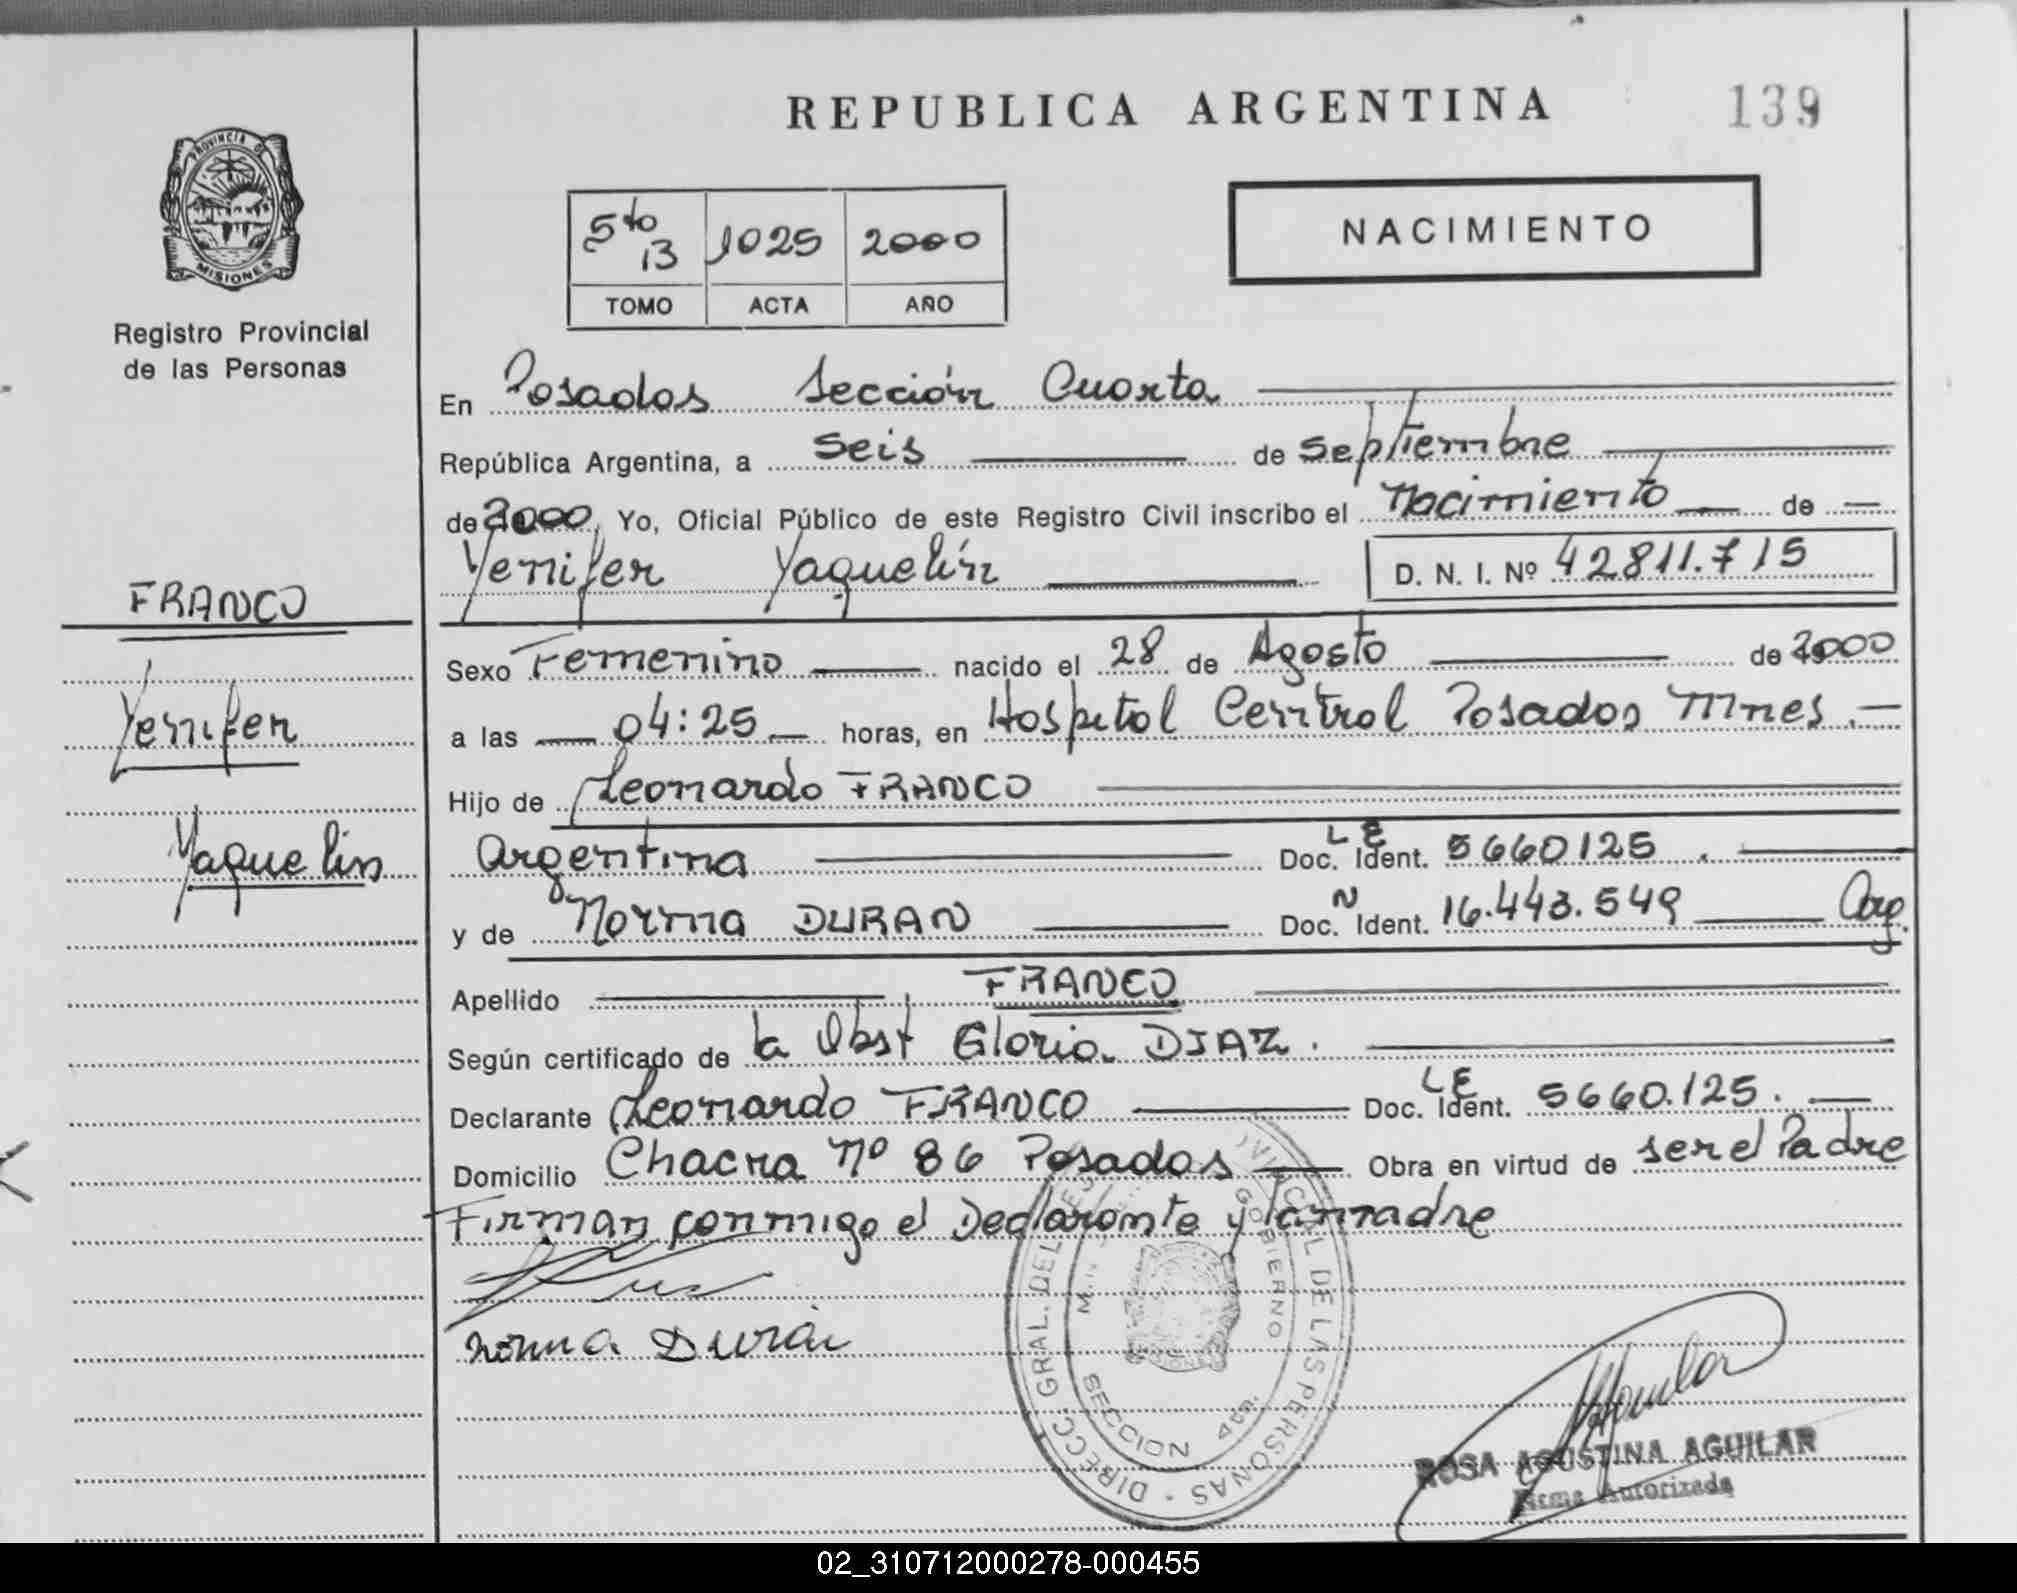 REPUBLICA ARGENTINA
139
PROVINCIA DE
MISIONES
Registro Provincial
de las Personas
5to 13 1025 2000
TOMO ACTA AÑO
NACIMIENTO
En Posadas Sección Cuarta
República Argentina, a seis de septiembre
de 2000, Yo, Oficial Público de este Registro Civil inscribo el Nacimiento de
Yenifer Yaquelín D. N. I. Nº 42811.715
FRANCO
Yenifer
Yaquelin
Sexo Femenino nacido el 28 de Agosto de 2000
a las 04:25 horas, en Hospital Central Posadas Mnes.
Hijo de Leonardo FRANCO
Argentina Doc. Ident. LE 5660125.
y de Norma DURAN Doc. N Ident. 16.443.549 Arg.
Apellido FRANCO
Según certificado de la Obst Gloria DIAZ.
Declarante Leonardo FRANCO Doc. Ident. LE 5660.125.
Domicilio Chacra Nº 86 Posadas Obra en virtud de ser el Padre
Firman conmigo el Declarante y la madre
Norma Durán
DIRECC. GRAL. DEL REG. PROVINCIAL DE LAS PERSONAS
GOBIERNO
MISIONES
SECCION 4ta.
ROSA AGUSTINA AGUILAR
Firma Autorizada
02_310712000278-000455